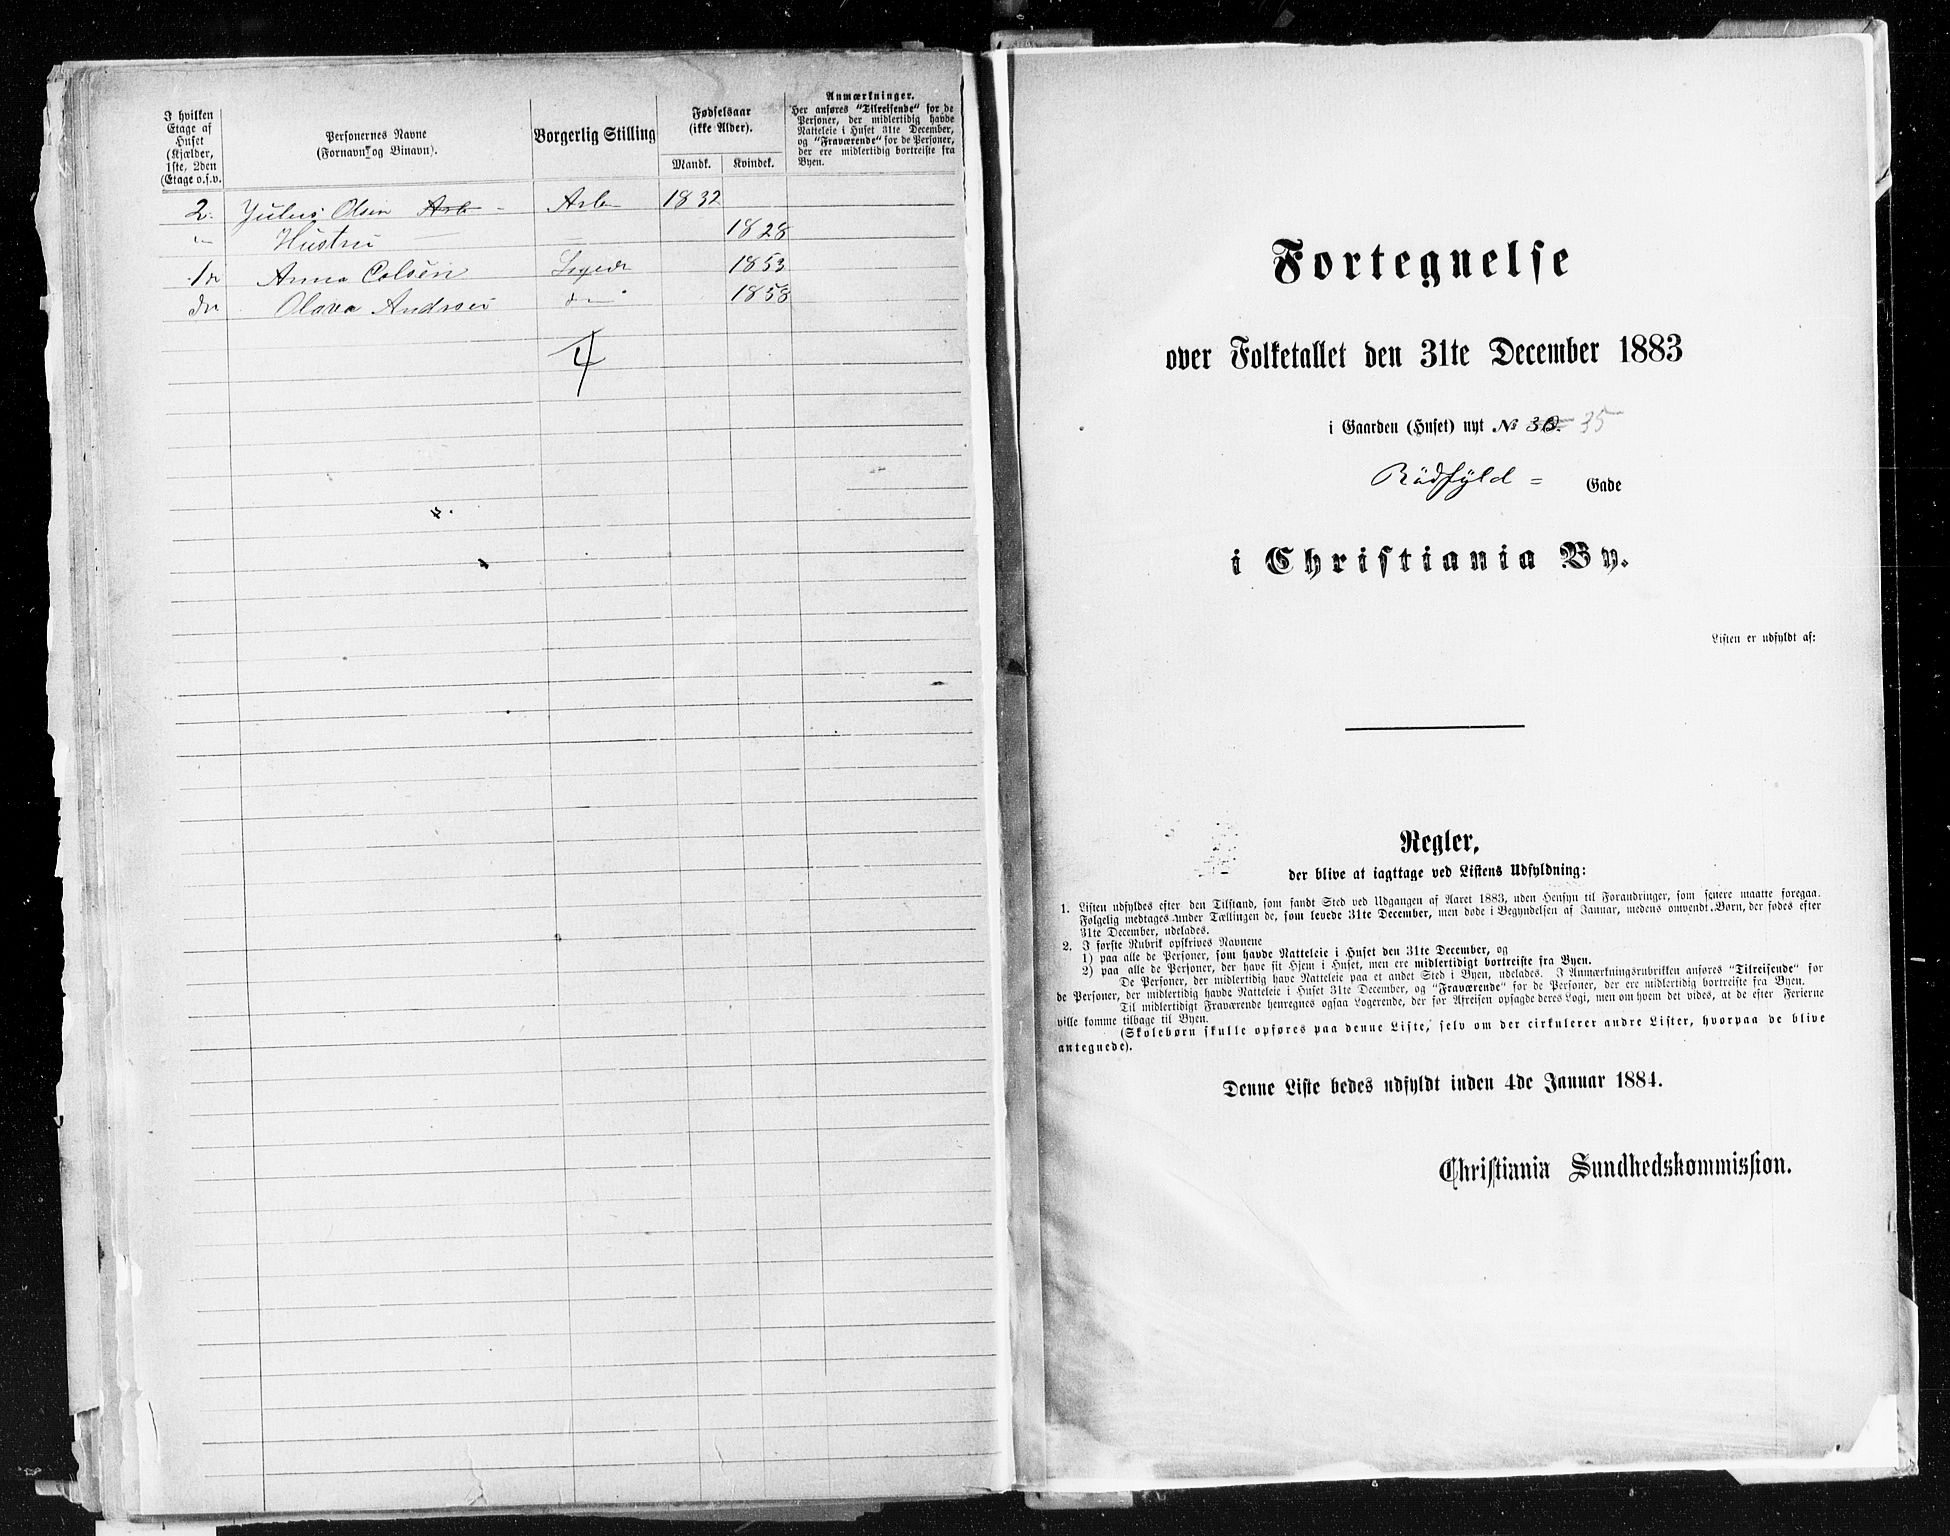 I hvilken
Etage af
Huset
(Kjælder,
1ste, 2den
Etage o.s.v.
Personernes Navne
(Fornavn og Binavn).
Borgerlig Stilling
Fødselsaar
(ikke Alder).
Mandk. Kvindek.
Anmærkninger.
Her anføres "Tilreisende" for de
Personer, der midlertidig havde
Natteleie i Huset 31te December,
og "Fraværende" for de Personer,
der ere midlertidig bortreiste fra
Byen.
2. Julius Olsen Arb - Arb 1832
Hustru 1828
1 Anna 1853
Olava 1858
4
Fortegnelse
over Folketallet den 31te December 1883
i Gaarden (Huset) nyt No 30. 35
Rödfyld = Gade
i Christiania By.
Listen er udfyldt af:
Regler,
der blive at iagttage ved Listens Udfyldning:
1. Listen udfyldes efter den Tilstand, som fandt Sted ved Udgangen af Aaret 1883, uden Hensyn til Forandringer, som senere maatte foregaa.
Følgelig medtages under Tællingen de, som levede 31te December, men døde i Begyndelsen af Januar, medens omvendt Børn, der fødes efter
31te December, udelades.
2. I første Rubrik opskrives Navnene
1) paa alle de Personer, som havde Natteleie i Huset den 31te December, og
2) paa alle de Personer, der have sit Hjem i Huset, men ere midlertidigt bortreiste fra Byen.
De Personer, der midlertidig have Natteleie paa et andet Sted i Byen, udelades. I Anmærkningsrubrikken anføres "Tilreisende" for
de Personer, der midlertidig havde Natteleie i Huset 31te December, og "Fraværende" for de Personer, der ere midlertidig bortreiste fra Byen.
Til midlertidigt Fraværende henregnes ogsaa Logerende, der før Afreisen opsagde deres Logi, men om hvem det vides, at de efter Ferierne
ville komme tilbage til Byen.
(Skolebørn skulle opføres paa denne Liste, selv om der cirkulerer andre Lister, hvorpaa de blive
antegnede).
Denne Liste bedes udfyldt inden 4de Januar 1884.
Christiania Sundhedskommission.